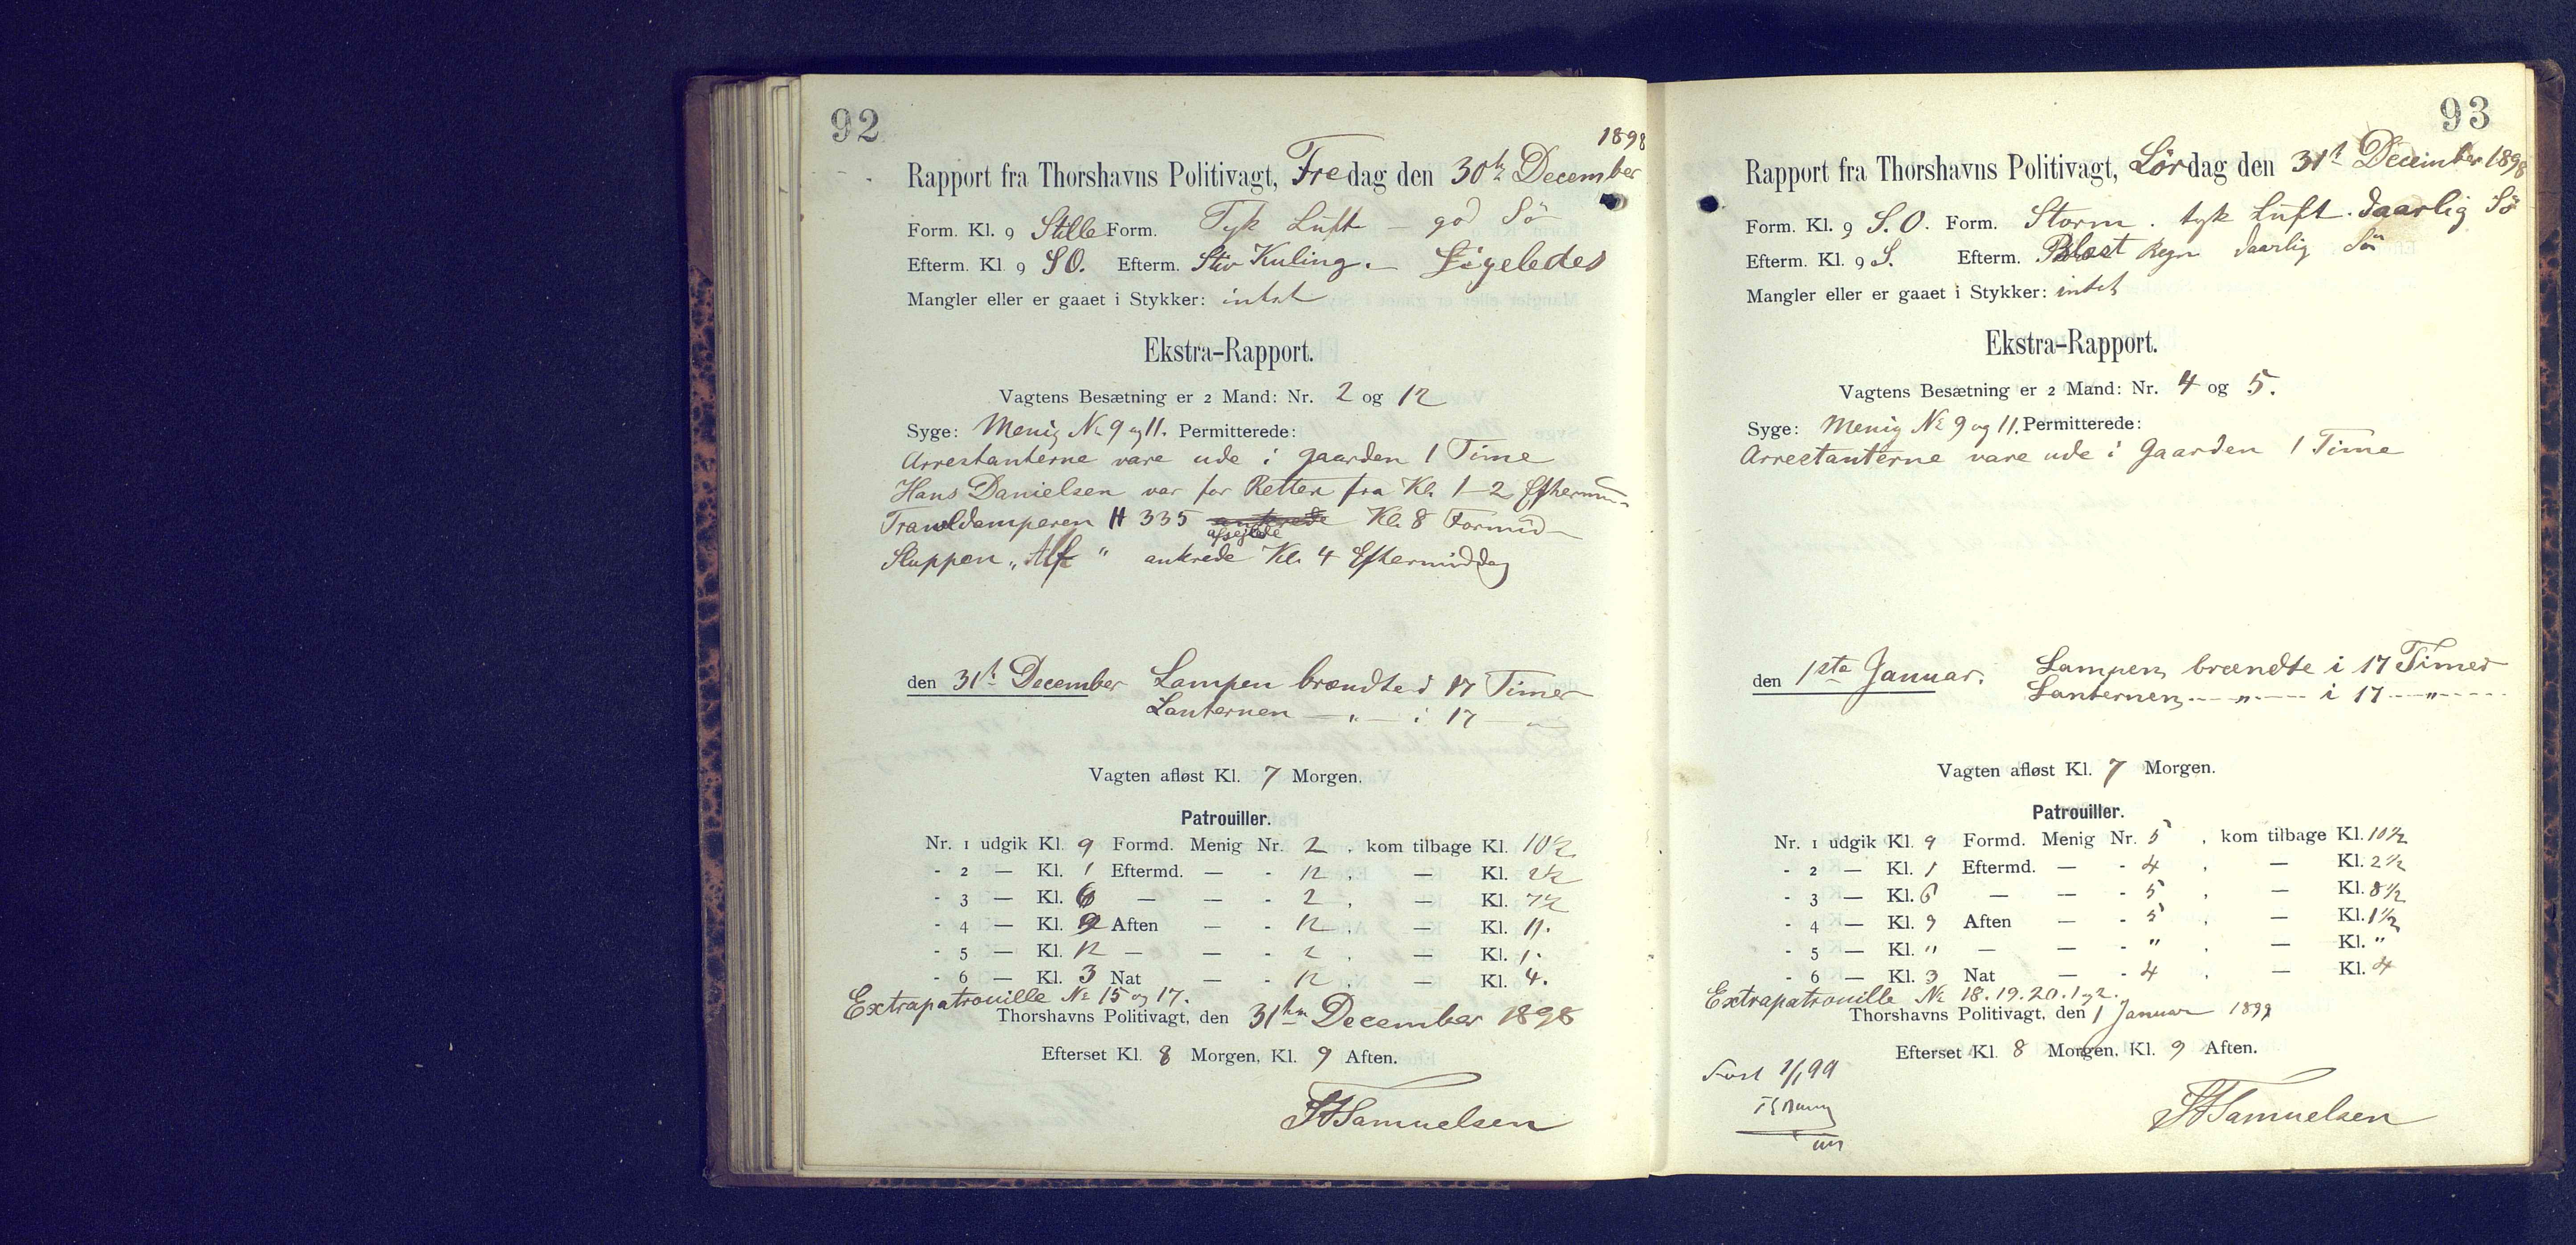 92
1898
Rapport fra Thorshavns Politivagt, Fredag den 30te December
Form. Kl. 9 Stille Form. Tyk Luft - god Sö
Efterm. Kl. 9 SO. Efterm. Stiv Kuling. - Ligeledes
Mangler eller er gaaet i Stykker: intet
Ekstra-Rapport.
Vagtens Besætning er 2 Mand: Nr. 2 og 12
Syge: Menig No 9 og 11. Permitterede:
Arrestanterne vare ude i gaarden 1 Time
Hans Danielsen var for Retten fra Kl. 1-2 Eftermid-
Trawldamperen H 335 ankrede Kl. 8 Formid-
afsejlede
Sluppen „Alf“ ankrede Kl. 4 Eftermiddag
den 31te December Lampen brændte i 17 Timer
Lanternen - „ - i 17 - „
Vagten afløst Kl. 7 Morgen.
Patrouiller.
Nr. 1 udgik Kl. 9 Formd. Menig Nr. 2 , kom tilbage Kl. 10½
- 2 — Kl. 1 Eftermd. — - 12 , — Kl. 2½
- 3 — Kl. 6 — — - 2 , — Kl. 7½
- 4 — Kl. 9 Aften — - 12 , — Kl. 11.
- 5 — Kl. 12 — — - 2 , — Kl. 1.
- 6 — Kl. 3 Nat — - 12 , — Kl. 4.
Extrapatrouille No 15 og 17.
Thorshavns Politivagt, den 31te December 1898
Efterset Kl. 8 Morgen, Kl. 9 Aften.
Samuelsen
93
Rapport fra Thorshavns Politivagt, Lördag den 31te December 1898
Form. Kl. 9 S.O. Form. Storm. tyk Luft. daarlig Sö
Efterm. Kl. 9 S. Efterm. Blæst Regn daarlig Sö
Mangler eller er gaaet i Stykker: intet
Ekstra-Rapport.
Vagtens Besætning er 2 Mand: Nr. 4 og 5.
Syge: Menig No 9 og 11. Permitterede:
Arrestanterne vare ude i Gaarden 1 Time
den 1ste Januar. Lampen brændte i 17 Timer
Lanternen - „ - i 17 - „ -
Vagten afløst Kl. 7 Morgen.
Patrouiller.
Nr. 1 udgik Kl. 9 Formd. Menig Nr. 5 , kom tilbage Kl. 10½
- 2 — Kl. 1 Eftermd. — - 4 , — Kl. 2½
- 3 — Kl. 6 — — - 5 , — Kl. 8½
- 4 — Kl. 9 Aften — - 5 , — Kl. 1½
- 5 — Kl. " — — - " , — Kl. "
- 6 — Kl. 3 Nat — - 4 , — Kl. 4
Extrapatrouille No 18. 19. 20. 1 og 2.
Thorshavns Politivagt, den 1 Januar 1899
Efterset Kl. 8 Morgen, Kl. 9 Aften.
Samuelsen